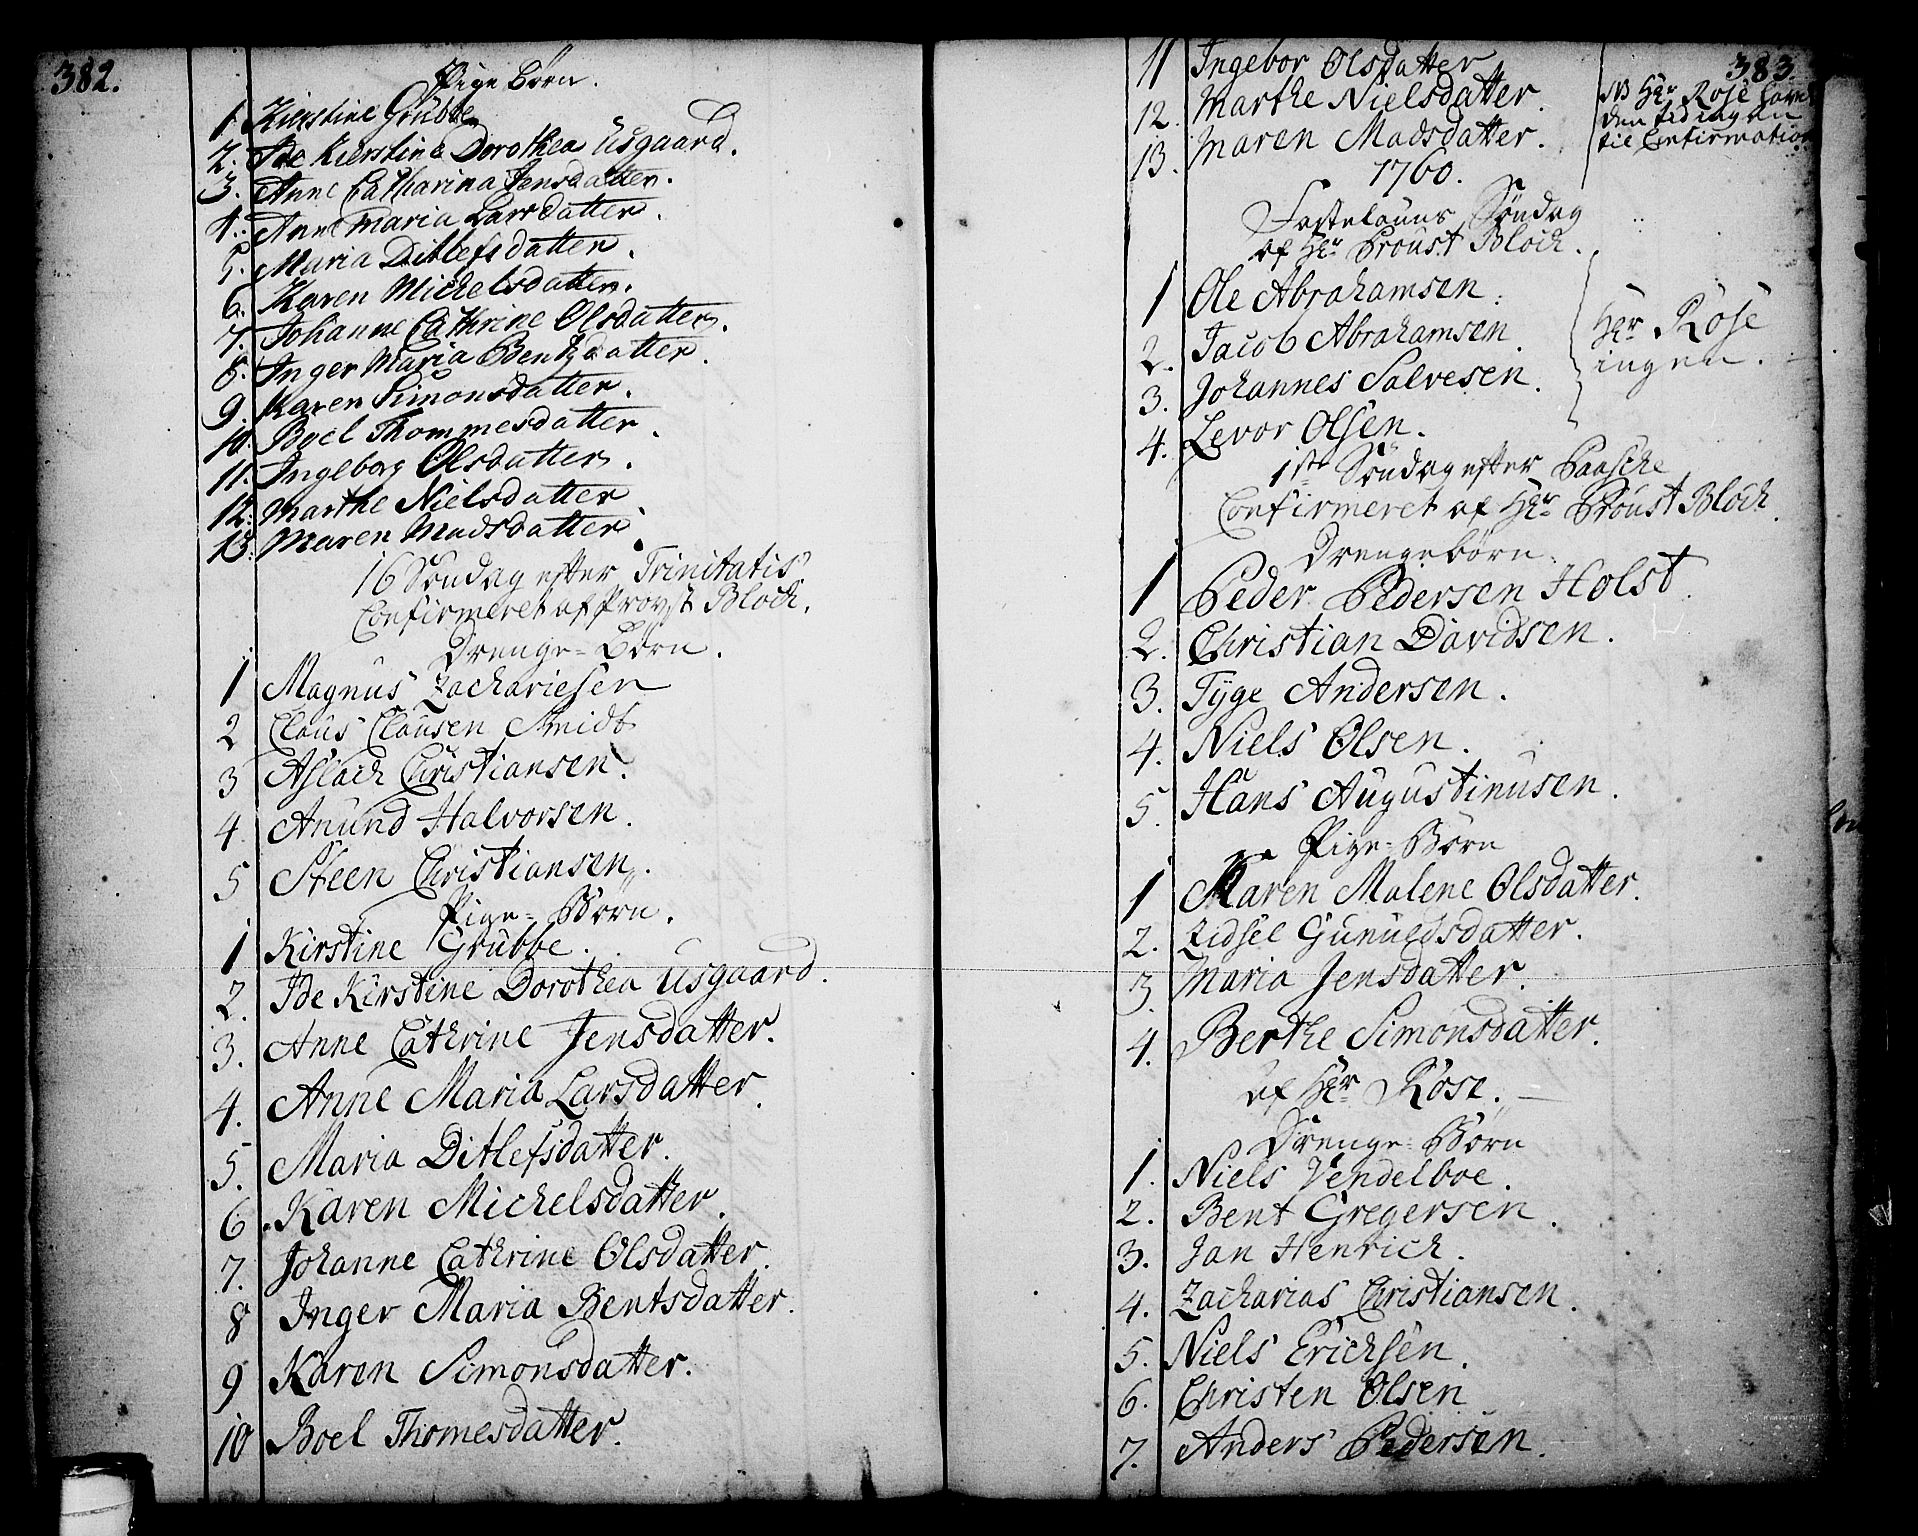 382.
Pige Børn.
1. Kierstine Grubbe
2. Ide Kierstine Dorothea Usgaard.
3. Anne Catharina Jensdatter.
4. Anne Maria Larsdatter.
5. Maria Ditlefsdatter.
6. Karen Michelsdatter.
7. Johanne Cathrine Olsdatter.
8. Inger Maria Bentzdatter.
9. Karen Simonsdatter.
10. Boel Thommesdatter.
11. Ingeborg Olsdatter.
12. Marthe Nielsdatter.
13. Maren Madsdatter.
16 Søndag efter Trinitatis
Confirmeret af Provst Bloch.
Drenge=Børn.
1 Magnus Zachariesen
2 Claus Clausen Smidt
3 Aslach Christiansen.
4. Anund Halvorsen.
5 Steen Christiansen.
Pige=Børn.
1 Kirstine Grubbe.
2. Ide Kirstine Dorothea Usgaard.
3. Anne Cathrine Jensdatter.
4. Anne Maria Larsdatter.
5. Maria Ditlefsdatter.
6. Karen Michelsdatter.
7. Johanne Cathrine Olsdatter.
8 Inger Maria Bentsdatter.
9 Karen Simonsdatter.
10 Boel Thomesdatter.
383.
11 Ingebor Olsdatter
12. Marthe Nielsdatter.
13. Maren Madsdatter.
NB Hr Rose havde
den tid ingen
til Confirmation
1760.
Fastelauns Søndag
af Hr Proust Bloch.
1 Ole Abrahamsen.
2. Jacob Abrahamsen.
3. Johannes Salvesen.
4. Levor Olsen.
Hr Rose
ingen.
1ste Søndag efter Paasche
Confirmeret af Hr Proust Bloch.
Drengebørn.
1 Peder Pedersen Holst.
2. Christian Davidsen.
3. Tyge Andersen.
4. Niels Olsen.
5. Hans Augustinusen.
Pige=Børn
1 Karen Malene Olsdatter.
2. Zidsel Gunuldsdatter.
3. Maria Jensdatter.
4. Berthe Simonsdatter.
af Hr Rose.
Drenge=Børn
1. Niels Vendelboe.
2. Bent Gregersen.
3. Jan Henrich.
4. Zacharias Christiansen.
5. Niels Ericksen.
6. Christen Olsen
7. Anders Pedersen.